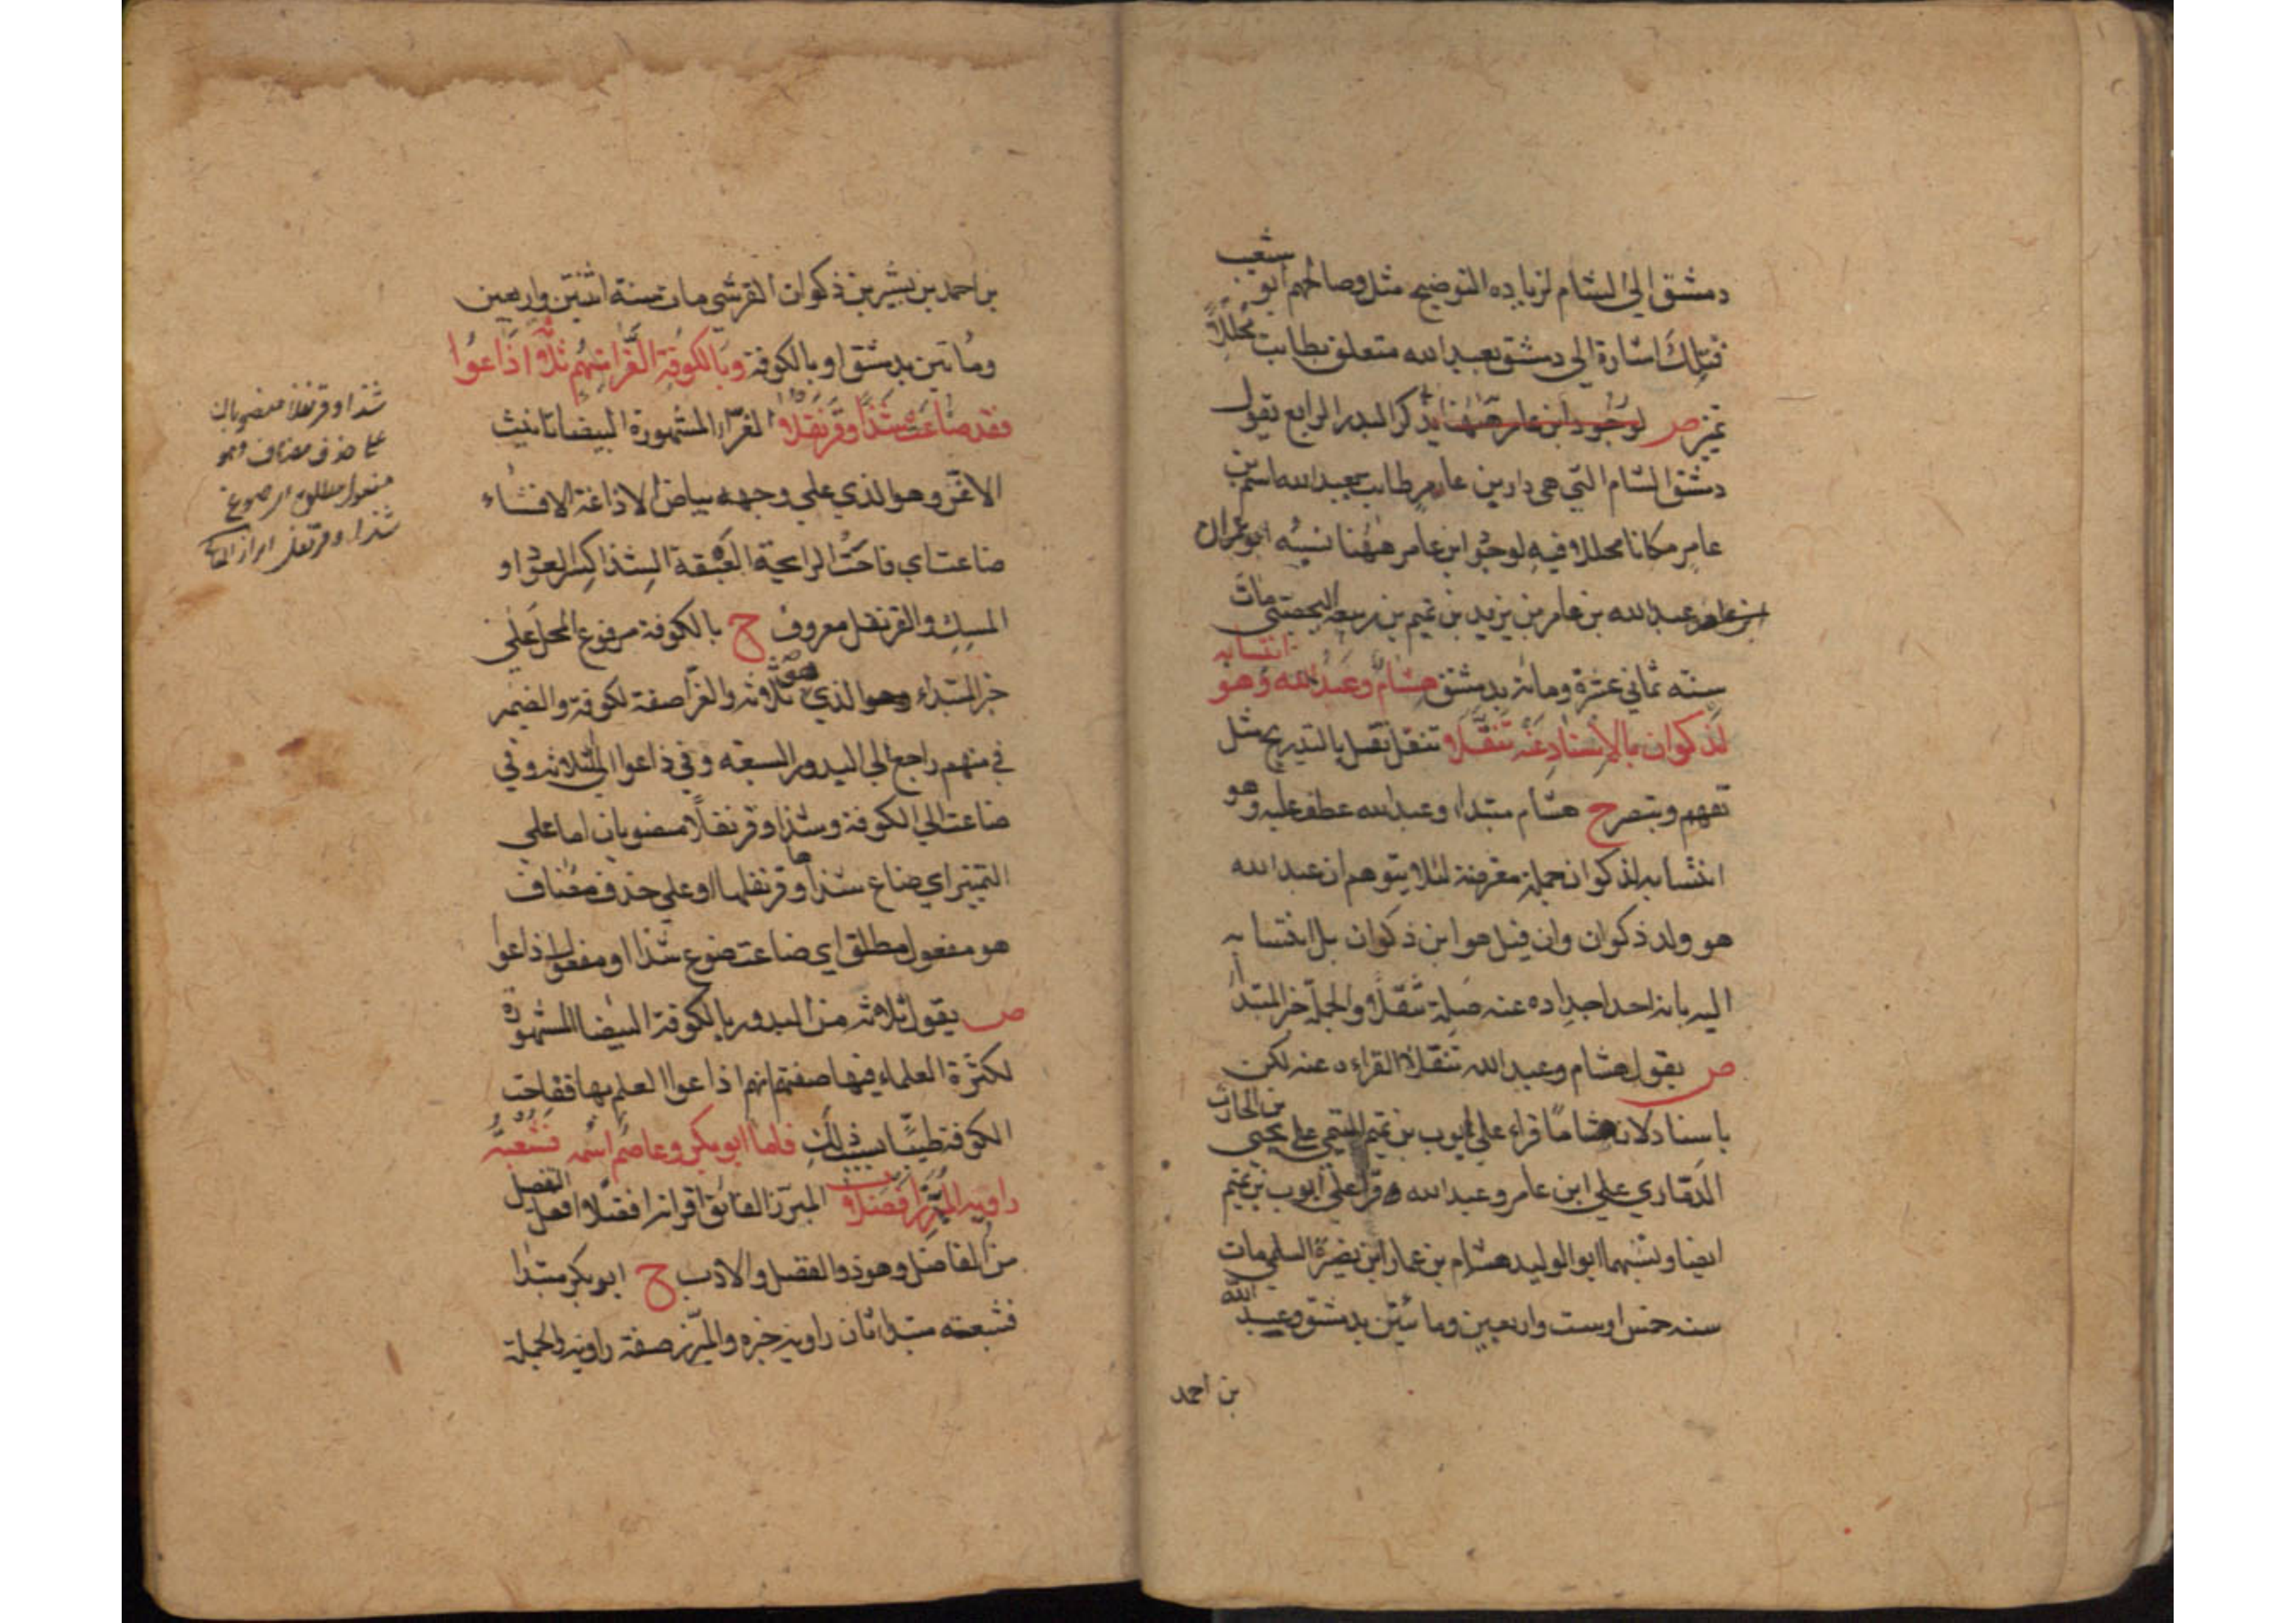 دمشق الى الشام لزيادة التوضيح مثل وصالحهم ابو شعيب
فتلك اشارة الى دمشق بعبد الله متعلق بطابت محللا
تميز ص لوجود ابن عامر ههنا يذكر البدر الرابع يقول
دمشق الشام التي هي دار بن عامر طابت بعبد الله اسم بن
عامر مكانا محللا فيه لوجود ابن عامر ههنا نسبه ابو عمران
عبد الله بن عامر بن يزيد بن تميم بن ربيعه اليحصبي مات
سنة ثماني عشرة ومائة بدمشق هشام وعبد الله وهو انتسابه
لذكوان بالاسناد عنه تنقلا تنقل نقل بالتدريج مثل
تفهم وتبصر ح هشام مبتداء وعبد الله عطف عليه وهو
انتسابه لذكوان جملة معرضة لئلا يتوهم ان عبد الله
هو ولد ذكوان وان قيل هو ابن ذكوان بل انتسابه
اليه بانه احد اجداده عنه صلة تنقلا والجملة خبر المبتدا
ص يقول هشام وعبد الله تنقلا القراءة عنه لكن
باسناد لان هشاما قراء على ايوب بن تميم التيمي على يحيى بن الحارث
الذماري على ابن عامر وعبد الله قرأ على ايوب بن تميم
ايضا ونسبهما ابو الوليد هشام بن عمار ابن نصير السلمي مات
سنه خمس او ست واربعين ومائتين بدمشق وعبد الله
بن احمد
بن احمد بن بشير بن ذكوان القرشي مات سنة اثنتين واربعين
ومائتين بدمشق او بالكوفة وبالكوفة الغراء منهم ثلاثة اذاعوا
فقد ضاعت شذا وقرنفلا الغراء المشهورة البيضا تانيث
الاغر وهو الذي على وجهه بياض الاذاعة الافشاء
ضاعت اي فاحت الرائحة العبقة الشذا كسر العود او
المسك والقرنفل معروف ح بالكوفة مرفوع المحل على
خبر المبتداء الذي هو ثلاثة والغرا صفة لكوفة والضمير
في منهم راجع الى البدور السبعه وفي ذاعوا الى الثلاثة وفي
ضاعت الى الكوفة وشذا وقرنفلا منصوبان اما على
التميز اي ضاع شذاها وقرنفلها او على حذف مضاف
هو مفعول مطلق اي ضاعت ضوع شذا او مفعول اذاعوا
ص يقول ثلاثة من البدور بالكوفة البيضا المشهورة
لكثرة العلماء فيها صفتهم انهم اذاعوا العلم بها ففاحت
الكوفة طيبا بسبب ذلك فاما ابو بكر وعاصم اسمه فشعبة
راويه المبرز افضلا المبرز الفائق اقرانه افضلا افعل التفضل
من الفاضل وهو ذو الفضل والادب ح ابو بكر مبتدا
فشعبته مبتداء ثان راويه خبره والمبرز صفة راويه والجملة
شذا وقرنفلا منصوبان
على حذف مضاف وهو
مفعول مطلق اي ضوع
شذا وقرنفل